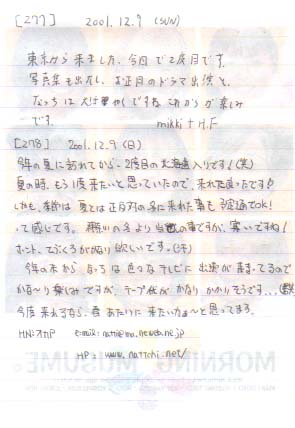 [277] 2001.12.9 (SUN)
東京から来ました、今回で2度目です。
写真集も出るし、お正月のドラマ出演と、
なっちは大忙しですね。これからが楽しみ
です。 mikki + H.F
[278] 2001.12.9 (日)
今年の夏に訪れてから、2度目の北海道入りです!(笑)
夏の時、もう1度来たいと思っていたので、来れて良かったです!
しかも、季節は夏とは正反対の冬に来れた事も OK!
って感じです。 の冬より 当 の事ですが、寒いですね!
ホント、てぶくろがかなり欲しいです。(汗)
今年の末から、なっちは色々なテレビに出演が って るので
かな〜り楽しみですが、テープ代がかなりかかりそうです...(笑)
今度来れるなら、春あたりに来たいなぁ〜と思ってます。
HN:オカP e-mail:
HP: www.nattchi.net/
MORNING MUSUME。